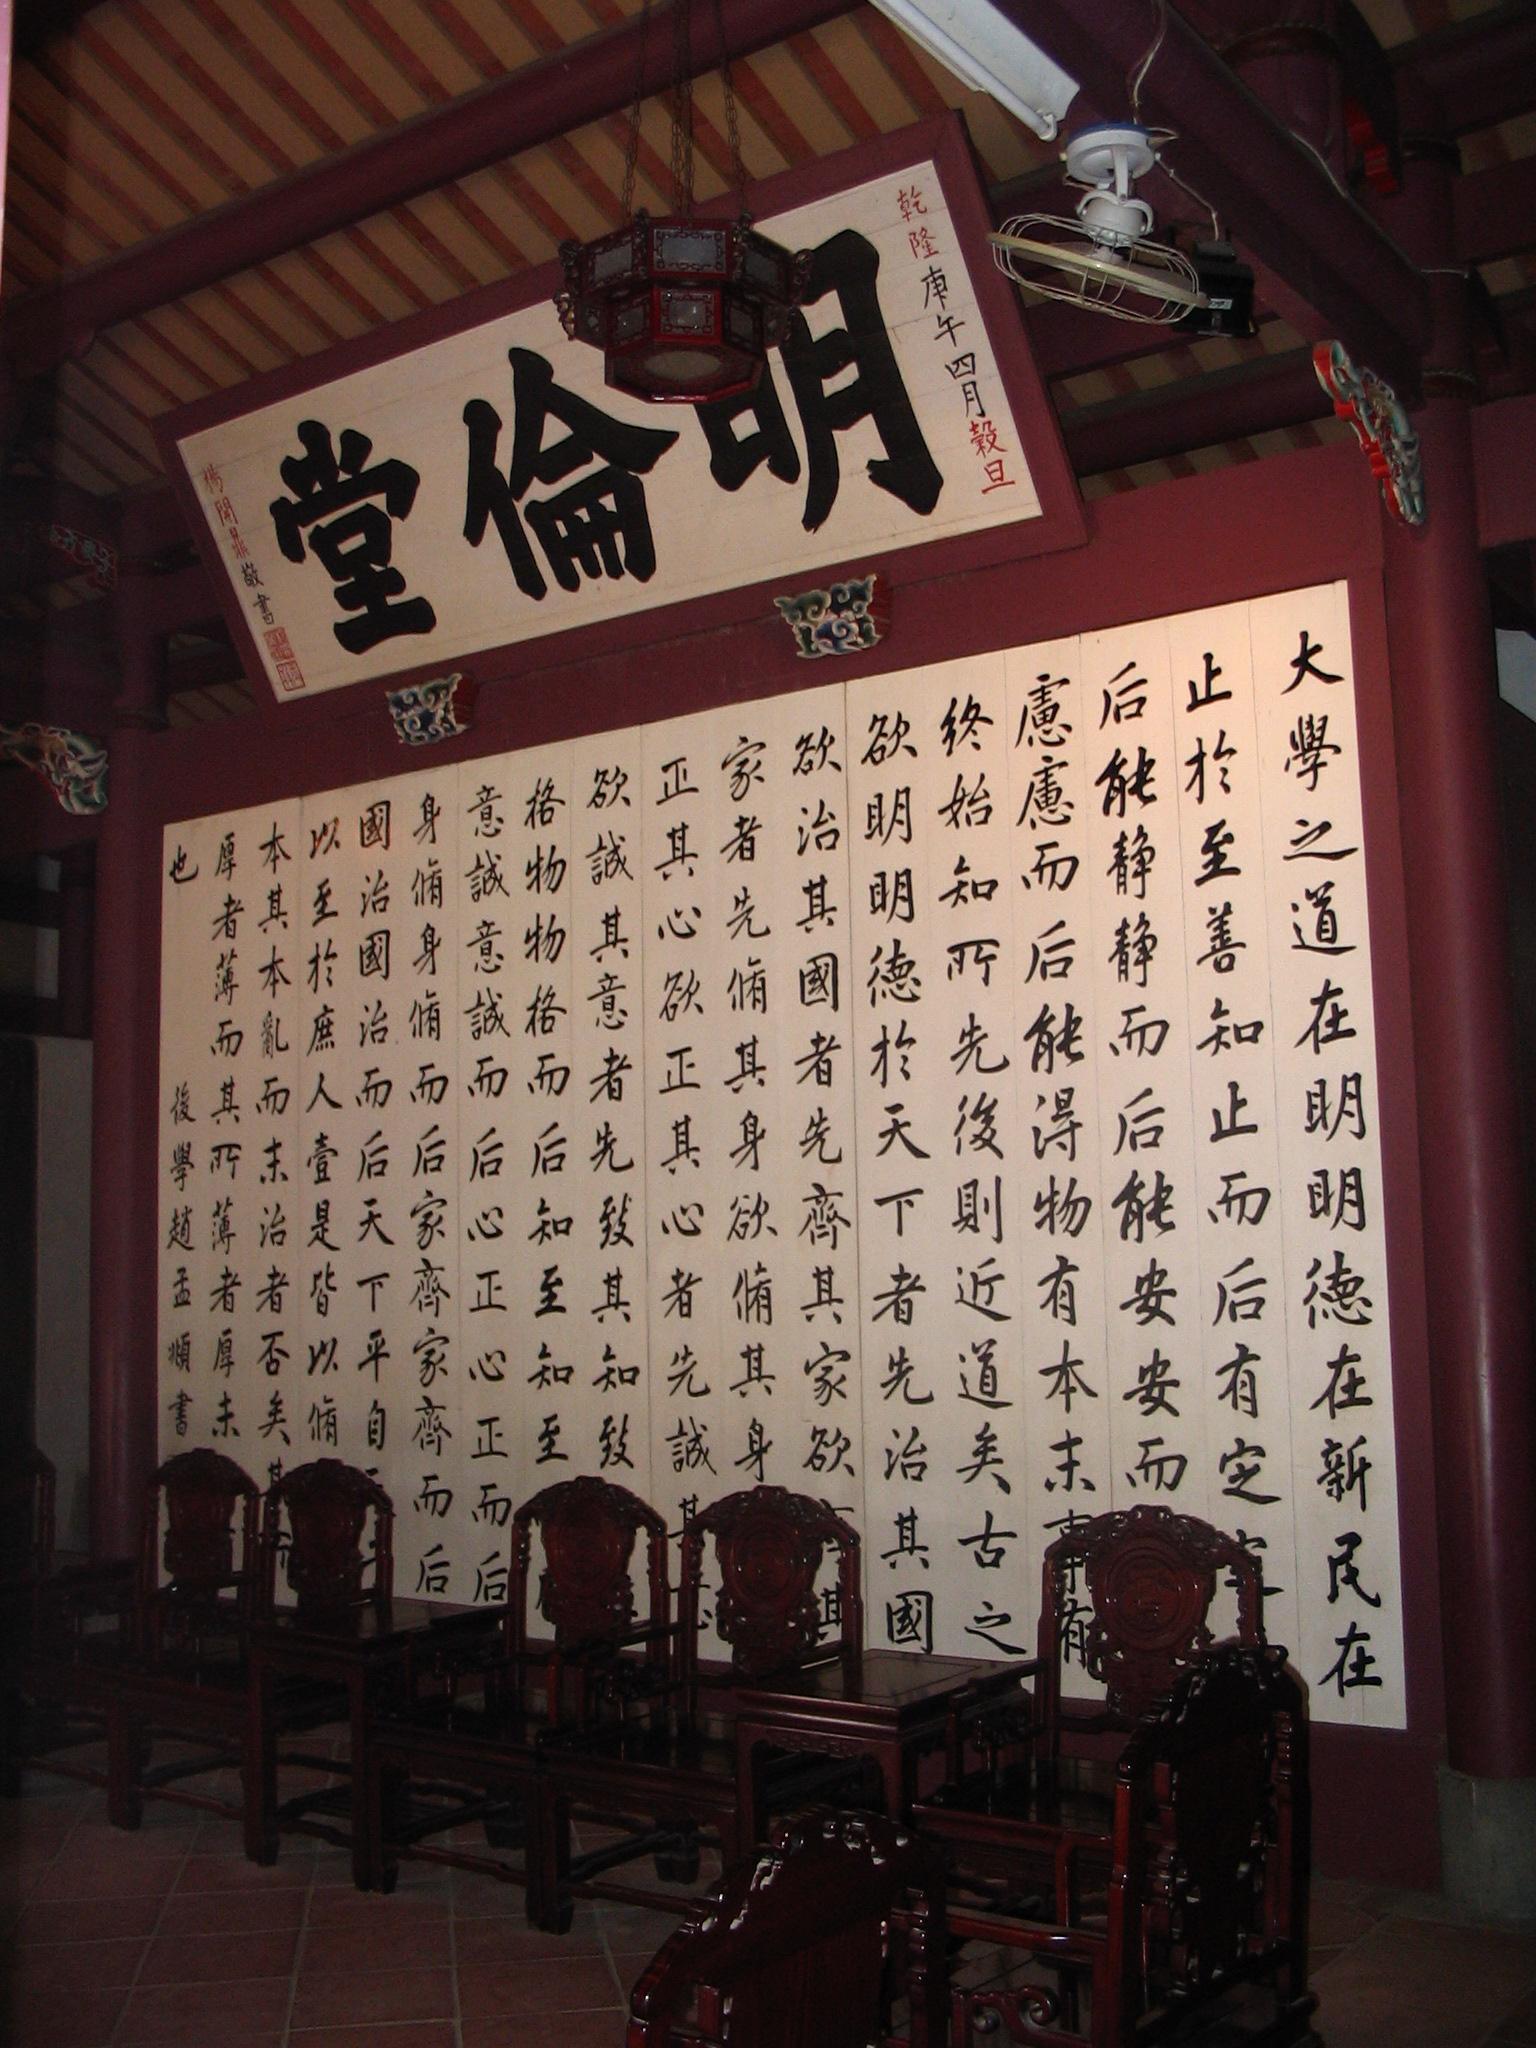 乾隆庚午四月穀旦
明倫堂
楊開鼎敬書
大學之道在明明德在新民在
止於至善知止而后有定定
后能静静而后能安安而
慮慮而后能得物有本末事有
終始知所先後則近道矣古之
欲明明德於天下者先治其國
欲治其國者先齊其家欲齊其
家者先脩其身欲脩其身
正其心欲正其心者先誠其意
欲誠其意者先致其知致
格物物格而后知至知至
意誠意誠而后心正心正而后
身脩身脩而后家齊家齊而后
國治國治而后天下平自天
以至於庶人壹是皆以脩
本其本亂而末治者否矣其所
厚者薄而其所薄者厚未
也 後學趙孟頫書